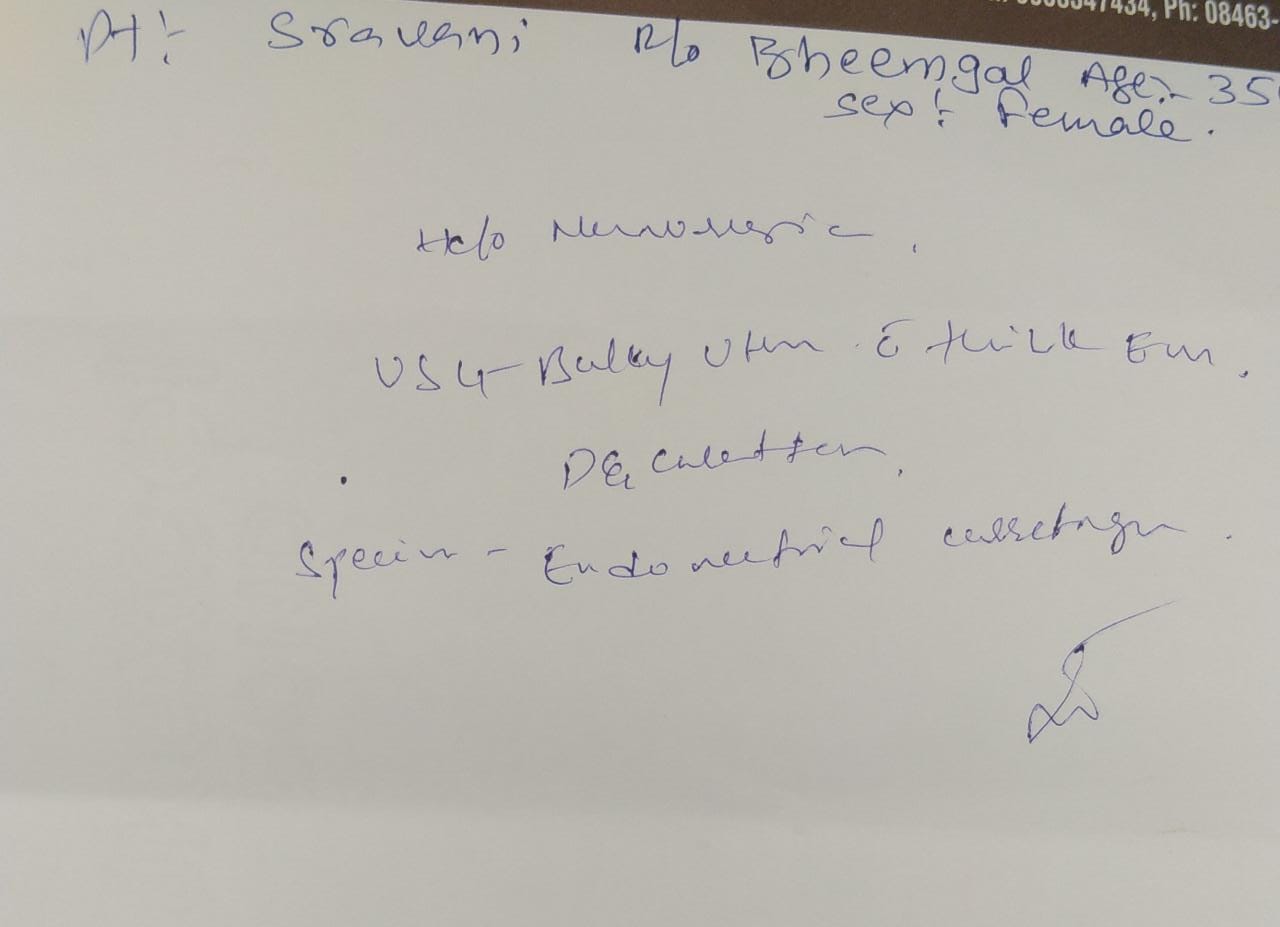 47434, Ph: 08463-
Pt:- Sravani R/o Bheemgal Age:- 35
Sex: Female.
H/o Menorrhagia.
USG - Bulky Uterus c̄ thick Em.
D&C
Specimen - Endometrial curettage.